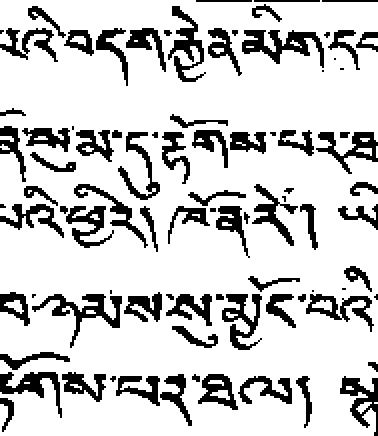 པའི་བདག་རྐྱེན་མིག་ད
ན་སུམ་དུ་རྟོགས་པར་ཐ
པའི་ཕྱིར། ཁོ་ན་རེ། ཡི
བ་ཉམས་སུ་མྱོང་བའི
རྟོགས་པར་ཐལ།